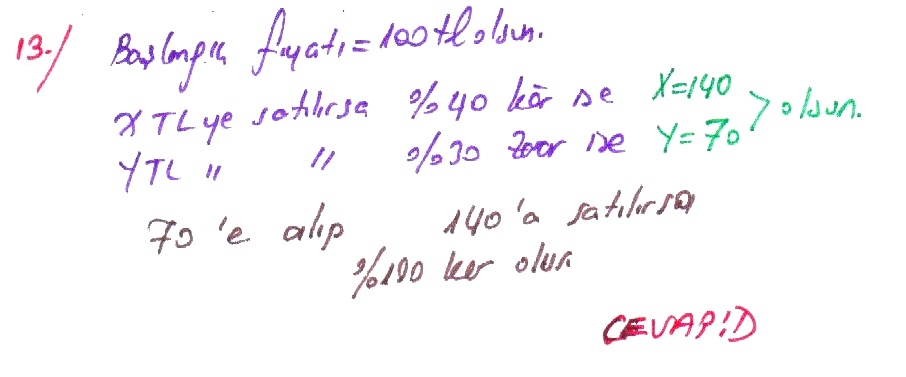 13./ Başlangıç fiyatı=100tl olsun.
X TL ye satılırsa %40 kâr ise X=140 > olsun.
Y TL " " %30 zarar ise Y=70
70'e alıp 140'a satılırsa
%100 kar olur
CEVAP:D